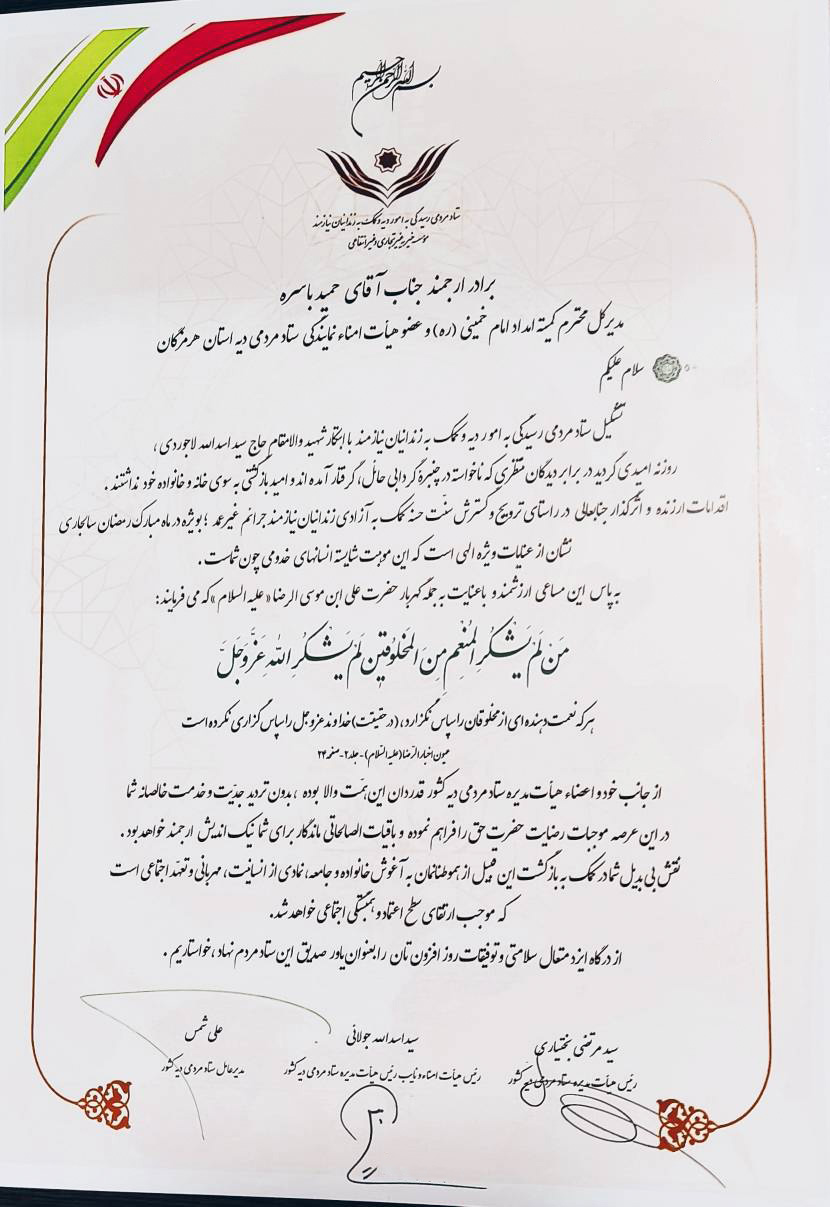 بسم الله الرحمن الرحیم
ستاد مردمی رسیدگی به امور دیه و کمک به زندانیان نیازمند
مؤسسه خیریه غیرتجاری و غیرانتفاعی
برادر ارجمند جناب آقای حمید باسره
مدیرکل محترم کمیته امداد امام خمینی (ره) و عضو هیأت امناء نمایندگی ستاد مردمی دیه استان هرمزگان
سلام علیکم
تشکیل ستاد مردمی رسیدگی به امور دیه و کمک به زندانیان نیازمند با ابتکار شهید والامقام حاج سید اسدالله لاجوردی ،
روزنه امیدی گردید در برابر دیدگان منتظری که ناخواسته در چنبرۀ گردابی حائل، گرفتار آمده اند و امید بازگشتی به سوی خانه و خانواده خود نداشتند .
اقدامات ارزنده و اثرگذار جنابعالی در راستای ترویج و گسترش سنّت حسنه کمک به آزادی زندانیان نیازمند جرائم غیرعمد ؛ بویژه در ماه مبارک رمضان سالجاری
نشان از عنایات ویژه الهی است که این موهبت شایسته انسانهای خدومی چون شماست .
به پاس این مساعی ارزشمند و باعنایت به جمله گهربار حضرت علی ابن موسی الرضا «علیه السلام» که می فرمایند:
مَن لَم یَشکُرِ المُنعِمَ مِنَ المَخلوقینَ لَم یَشکُرِ اللهَ عَزَّوَجَلَّ
هر که نعمت دهنده ای از مخلوقان را سپاس نگزارد، (در حقیقت) خداوند عزوجل را سپاس گزاری نکرده است
عیون اخبار الرّضا (علیه السّلام) - جلد ۲ - صفحه ۲۴
از جانب خود و اعضاء هیأت مدیره ستاد مردمی دیه کشور قدردان این همّت والا بوده ، بدون تردید جدیّت و خدمت خالصانه شما
در این عرصه موجبات رضایت حضرت حق را فراهم نموده و باقیات الصالحاتی ماندگار برای شما نیک اندیش ارجمند خواهد بود .
نقش بی بدیل شما در کمک به بازگشت این قبیل از هموطنانمان به آغوش خانواده و جامعه، نمادی از انسانیت، مهربانی و تعهّد اجتماعی است
که موجب ارتقای سطح اعتماد و همبستگی اجتماعی خواهد شد.
از درگاه ایزد متعال سلامتی و توفیقات روز افزون تان را بعنوان یاور صدیق این ستاد مردم نهاد ، خواستاریم .
سید مرتضی بختیاری
رئیس هیأت مدیره ستاد مردمی دیه کشور
سید اسدالله جولائی
رئیس هیأت امناء و نایب رئیس هیأت مدیره ستاد مردمی دیه کشور
علی شمس
مدیرعامل ستاد مردمی دیه کشور